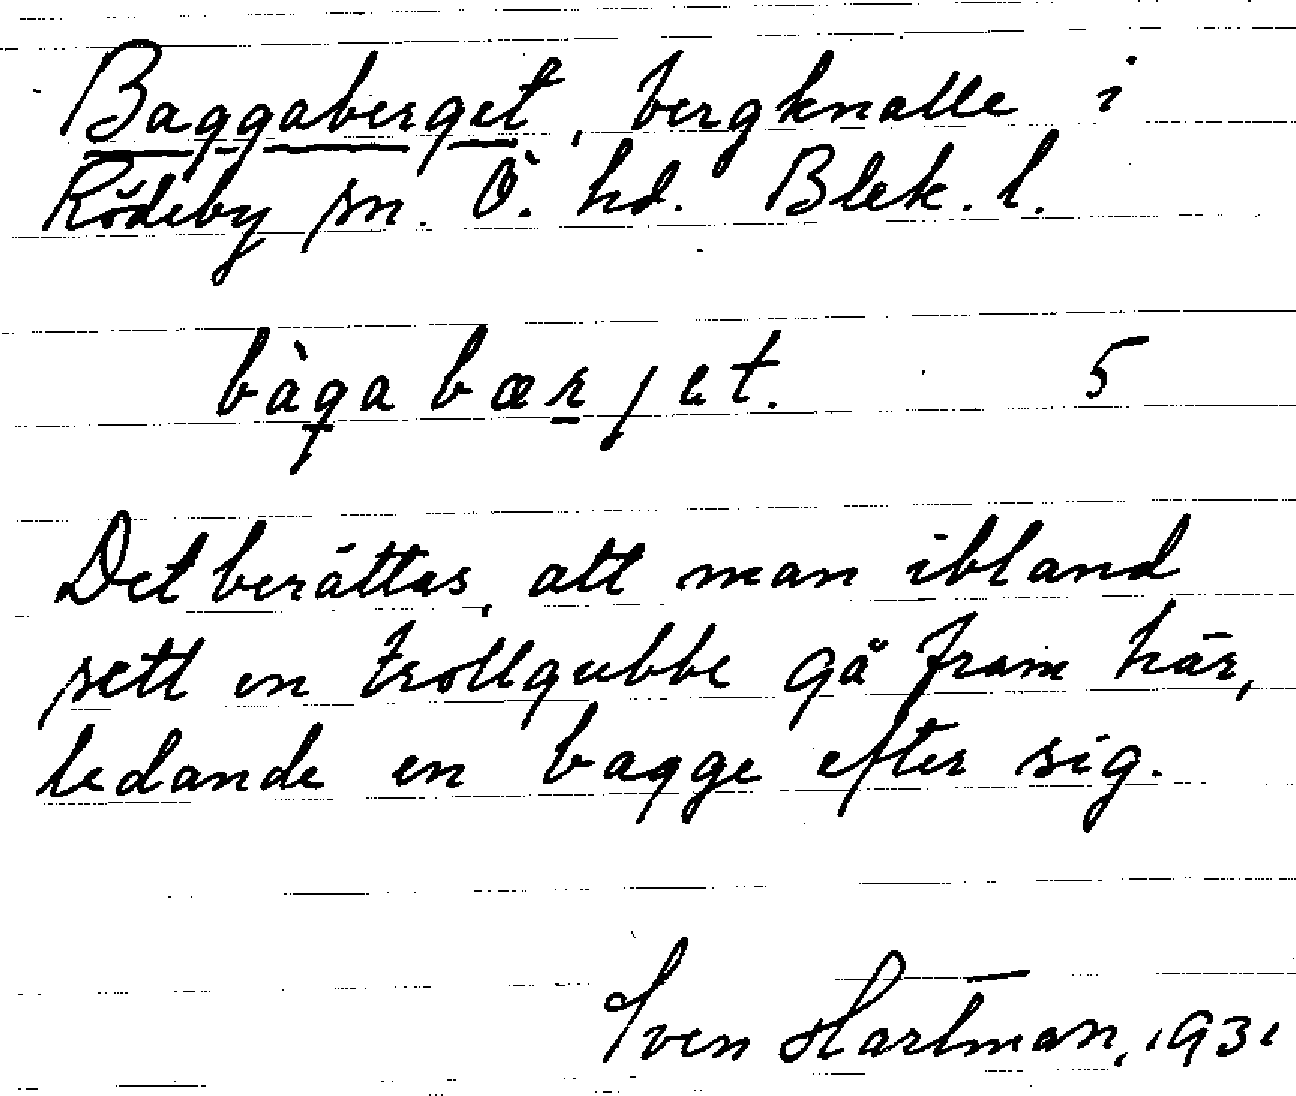 Baggaberget, bergknalle i
Rödeby sn. Ö. hd. Blek. l.
bàga bærjet. 5
Det berättas, att man ibland
sett en trollgubbe gå fram här,
ledande en bagge efter sig.
Sven Hartman, 1931